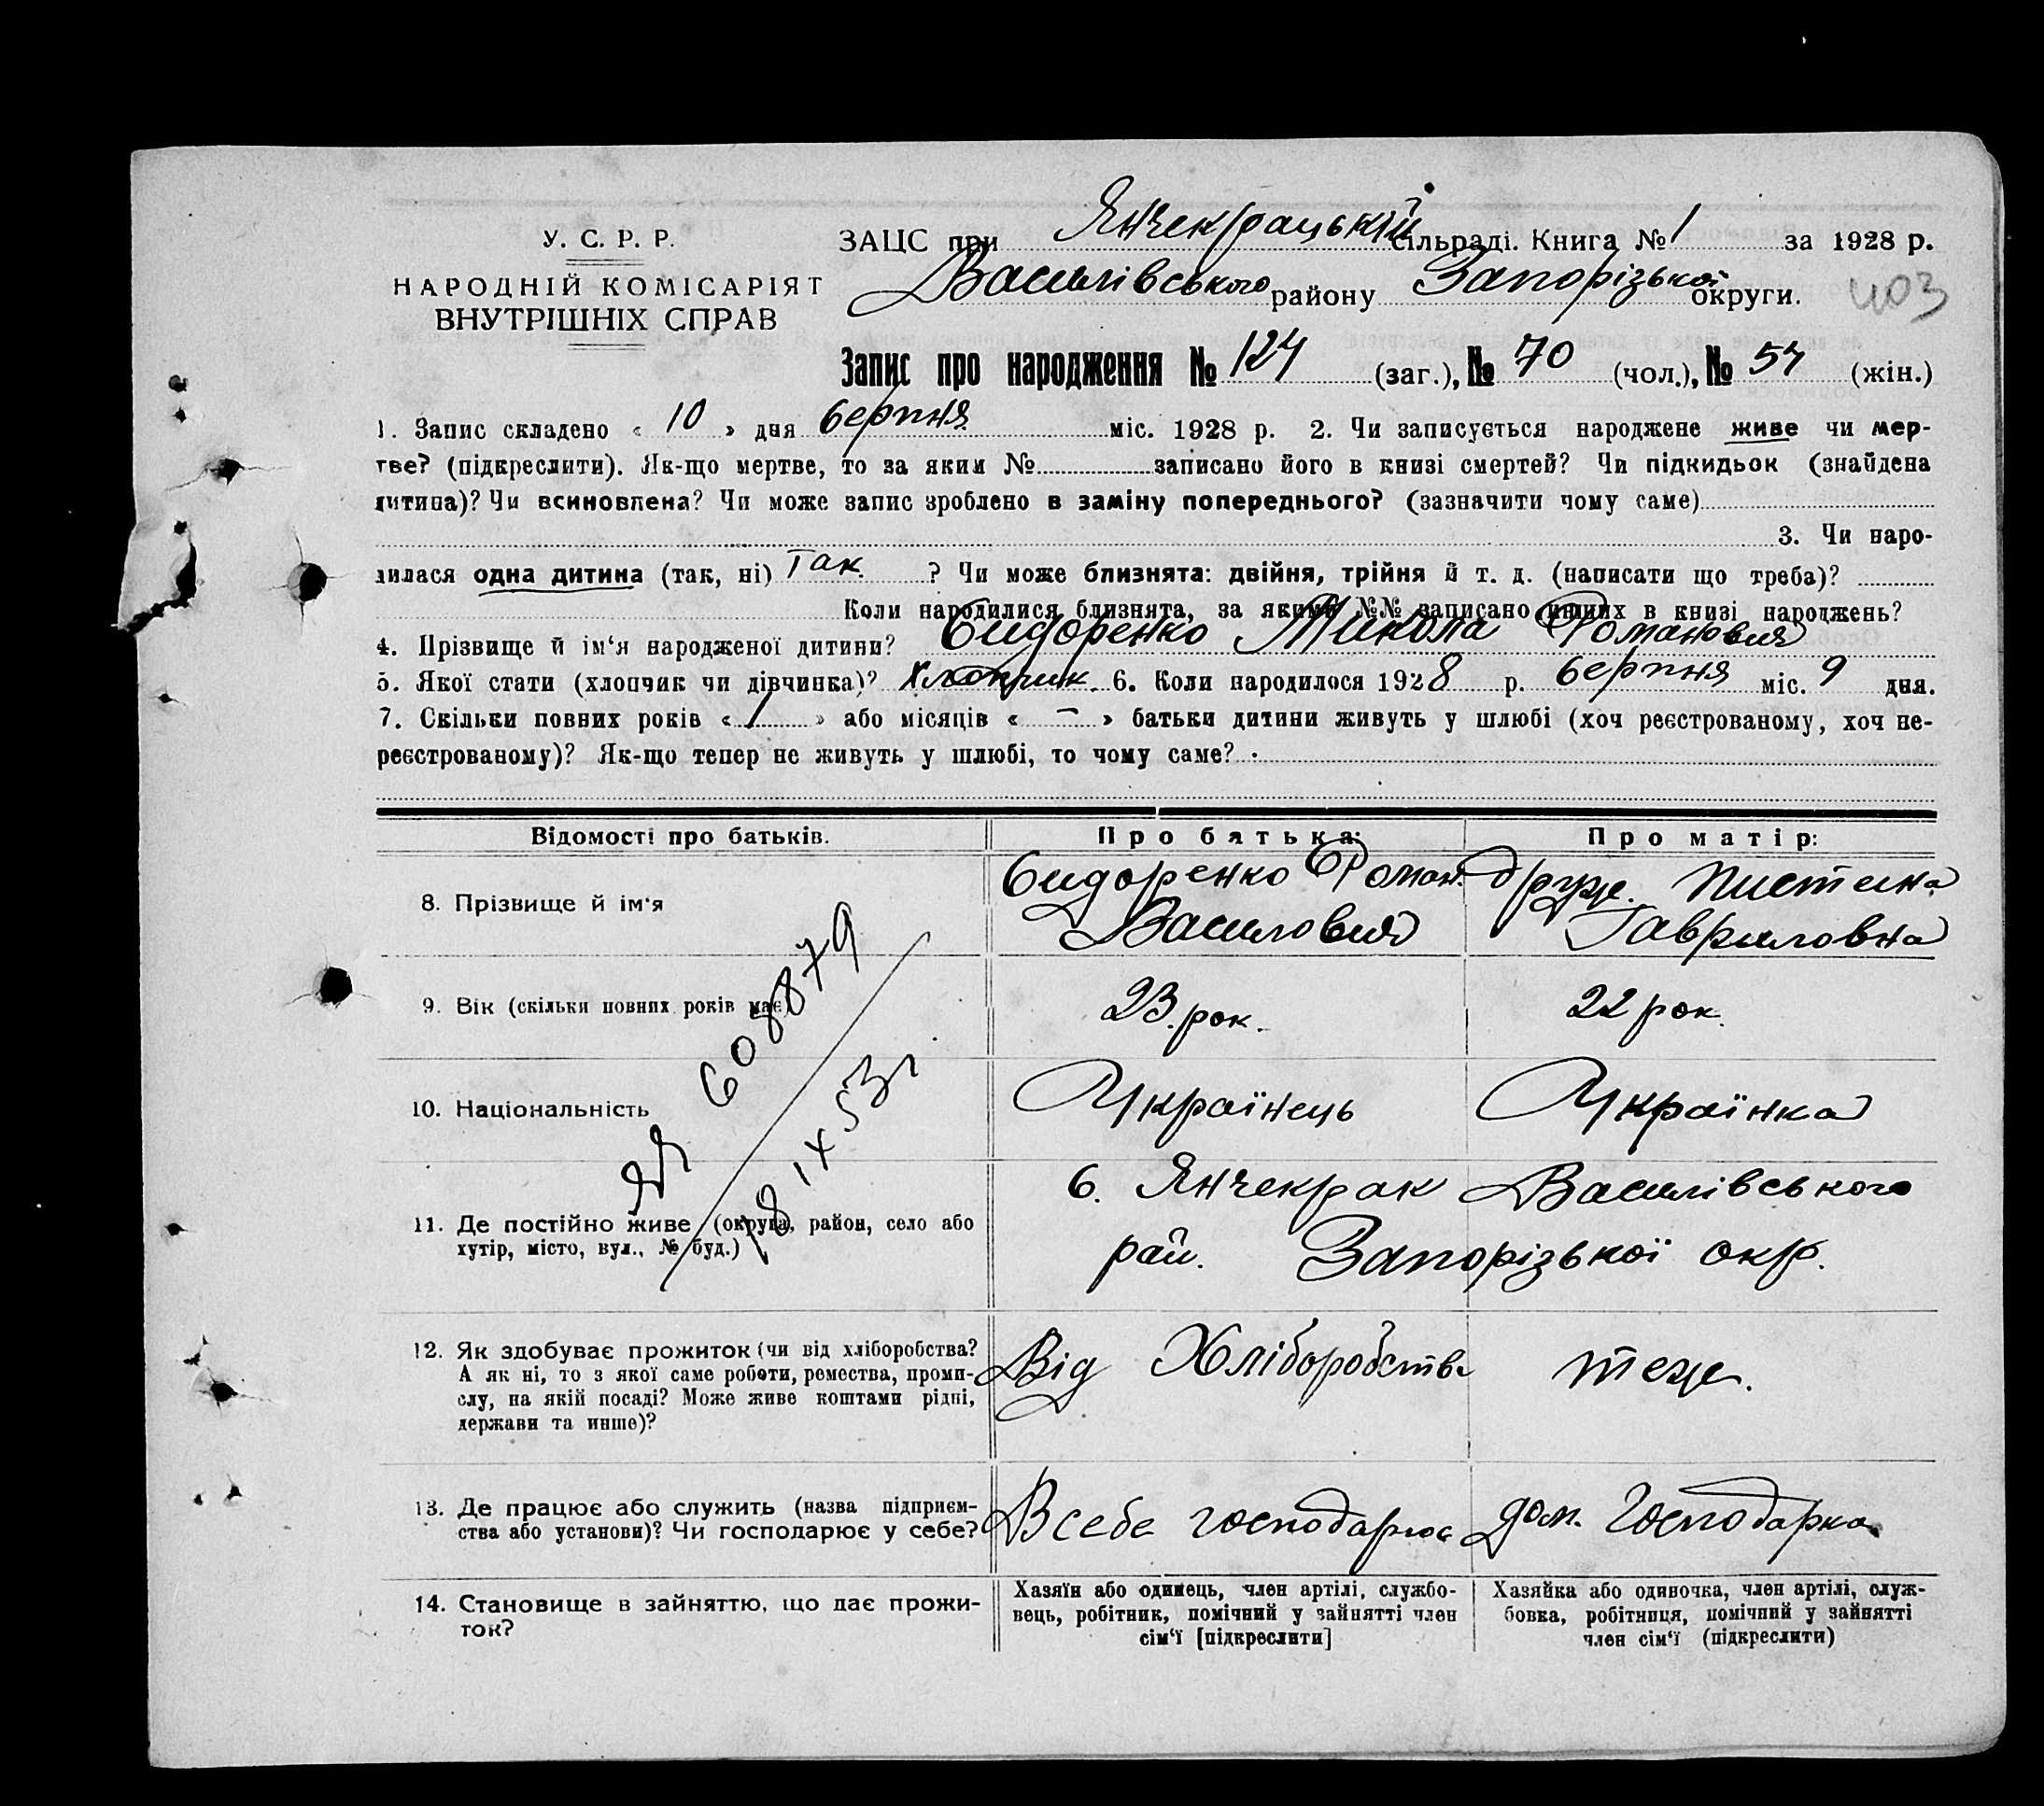 У. С. Р. Р.
НАРОДНІЙ КОМІСАРІЯТ
ВНУТРІШНІХ СПРАВ
ЗАЦС при Янчекрацькій сільраді. Книга № 1 за 1928 р.
Василівського району Запорізької округи.
403
Запис про народження № 124 (заг.), № 70 (чол.), № 54 (жін.)
1. Запис складено « 10 » дня серпня міс. 1928 р. 2. Чи записується народжене живе чи мер-
тве? (підкреслити). Як-що мертве, то за яким № записано його в книзі смертей? Чи підкидьок (знайдена
дитина)? Чи всиновлена? Чи може запис зроблено в заміну попереднього? (зазначити чому саме)
3. Чи наро-
дилася одна дитина (так, ні) Так. ? Чи може близнята: двійня, трійня й т. д. (написати що треба)?
Коли народилися близнята, за якими №№ записано инших в книзі народжень?
4. Прізвище й ім'я народженої дитини? Сидоренко Микола Романович
5. Якої стати (хлопчик чи дівчинка)? Хлопчик. 6. Коли народилося 1928 р. серпня міс. 9 дня.
7. Скільки повних років « 1 » або місяців « – » батьки дитини живуть у шлюбі (хоч реєстрованому, хоч не-
реєстрованому)? Як-що тепер не живуть у шлюбі, то чому саме?
Відомості про батьків. Про батька: Про матір:
8. Прізвище й ім'я
Сидоренко Роман Василович
друж. Гавриловна
9. Вік (скільки повних років має) 23. рок. 22 рок.
10. Національність Українець Українка
608879
18 IX 53г.
11. Де постійно живе (округа, район, село або
хутір, місто, вул., № буд.)
с. Янчекрак Василівського
рай. Запорізької окр.
12. Як здобуває прожиток (чи від хліборобства?
А як ні, то з якої саме роботи, ремества, проми-
слу, на якій посаді? Може живе коштами рідні,
держави та инше)?
Від Хліборобства теже.
13. Де працює або служить (назва підприєм-
ства або установи)? Чи господарює у себе?
В себе господарює дом. Господарка
14. Становище в зайняттю, що дає прожи-
ток?
Хазяїн або одинець, член артілі, службо-
вець, робітник, помічний у зайнятті член
сім'ї [підкреслити]
Хазяйка або одиночка, член артілі, служ-
бовка, робітниця, помічний у зайнятті
член сім'ї (підкреслити)